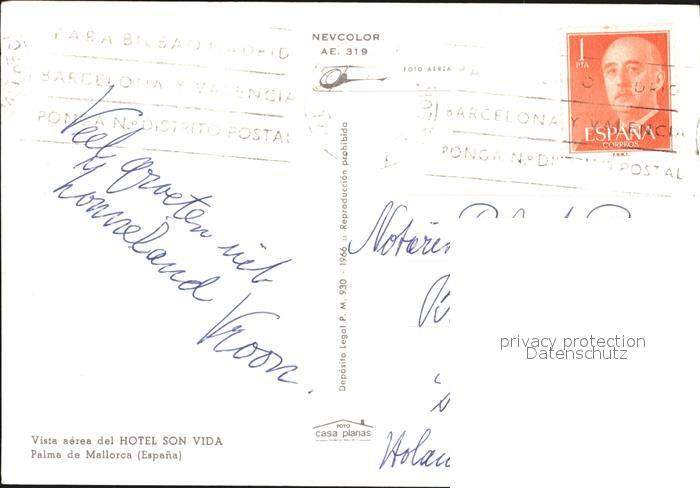 NEVCOLOR
AE. 319
FOTO AEREA
PARA BILBAO MADRID
BARCELONA Y VALENCIA
PONGA N.o DISTRITO POSTAL
1
PTA
ESPAÑA
CORREOS
F.N.M.T.
BARCELONA Y VALENCIA
PONGA N.o DISTRITO POSTAL
Veel groeten uit
zonneland
Kroon.
Depósito Legal P. M. 930 - 1966 :: Reproducción prohibida
Notaris
Holan
privacy protection
Datenschutz
FOTO
casa planas
Vista aérea del HOTEL SON VIDA
Palma de Mallorca (España)